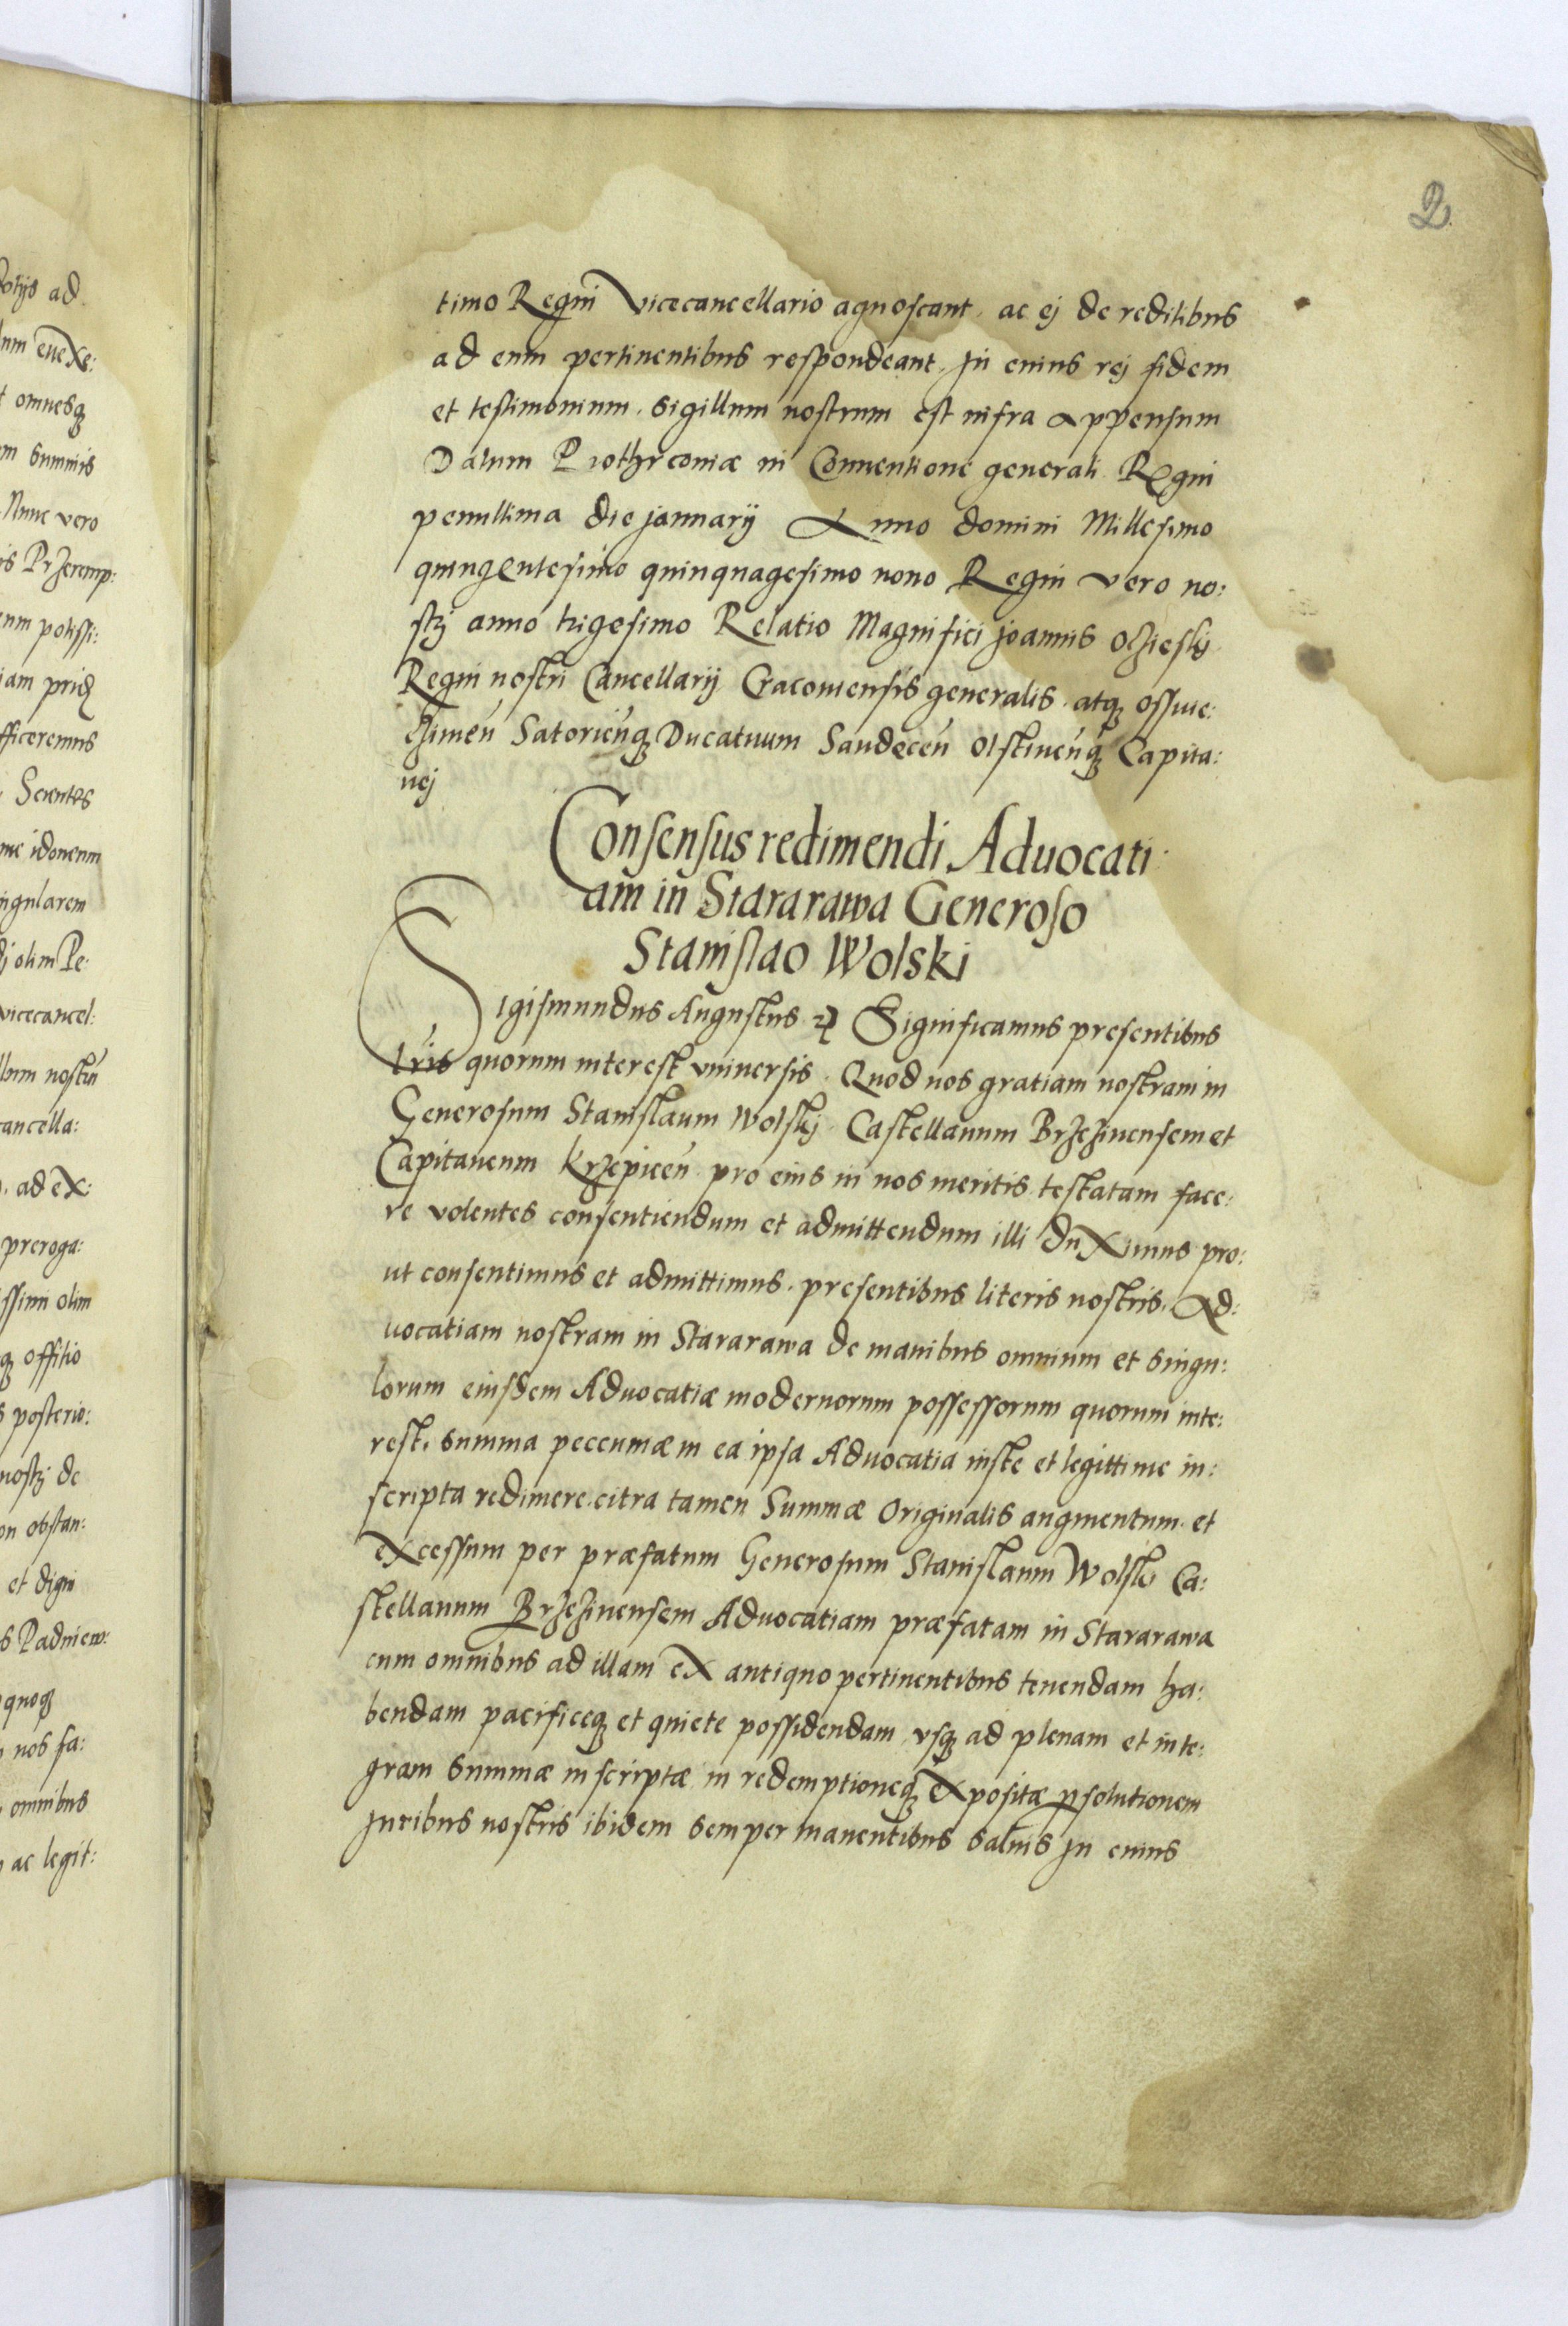 2.
timo Regni Vicecancellario agnoscant, ac ej de reditibus
ad eum pertinentibus respondeant. In cuius rej fidem
et testimonium. Sigillum nostrum est infra appensum
Datum Piothrcoviæ in Conventione generali Regni
penultima die januarij Anno domini Millesimo
quingentesimo quinquagesimo nono Regni vero no:
strj anno trigesimo Relatio Magnifici joannis Oczieskj
Regni nostri Cancellarij Cracoviensis generalis. atqȝ ossvie:
czimeñ Satorieñqȝ Ducatuum Sandeceñ Olstineñqȝ Capita:
nej
Consensus redimendi Aduocati
am in Stararawa Generoso
Stanislao Wolski
Sigismundus Augustus Significamus presentibus
lris quorum interest vniversis. Quod nos gratiam nostram in
Generosum Stanislaum Wolskj Castellanum Brzezinensem et
Capitaneum Krzepiceñ pro eius in nos meritis testatam face:
re volentes consentiendum et admittendum illi duximus pro:
ut consentimus et admittimus. presentibus literis nostris. Ad:
uocatiam nostram in Stararawa de manibus omnium et singu:
lorum eiusdem Aduocatiæ modernorum possessorum quorum inte:
rest. summa peccuniæ in ea ipsa Aduocatia iuste et legittime in:
scripta redimere. citra tamen Summæ Originalis augmentum et
excessum per præfatum Generosum Stanislaum Wolskj Ca:
stellanum Brzezinensem Aduocatiam præfatam in Stararawa
cum omnibus ad illam ex antiquo pertinentibus tenendam ha:
bendam pacificeqȝ et quiete possidendam vsqȝ ad plenam et inte:
gram summæ inscriptæ in redemptioneqȝ expositæ psolutionem
Iuribus nostris ibidem semper manentibus saluis In cuius